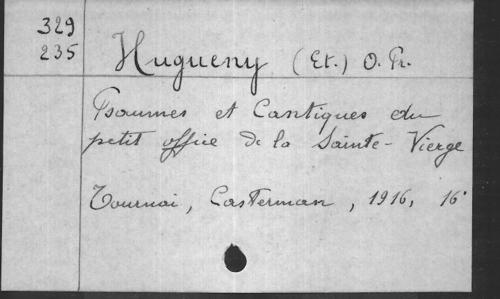 329
235
Hugueny (Et.) O. Pr.
Psaumes et Cantiques du
petit office de la Sainte-Vierge
Tournai, Casterman, 1916, 16°